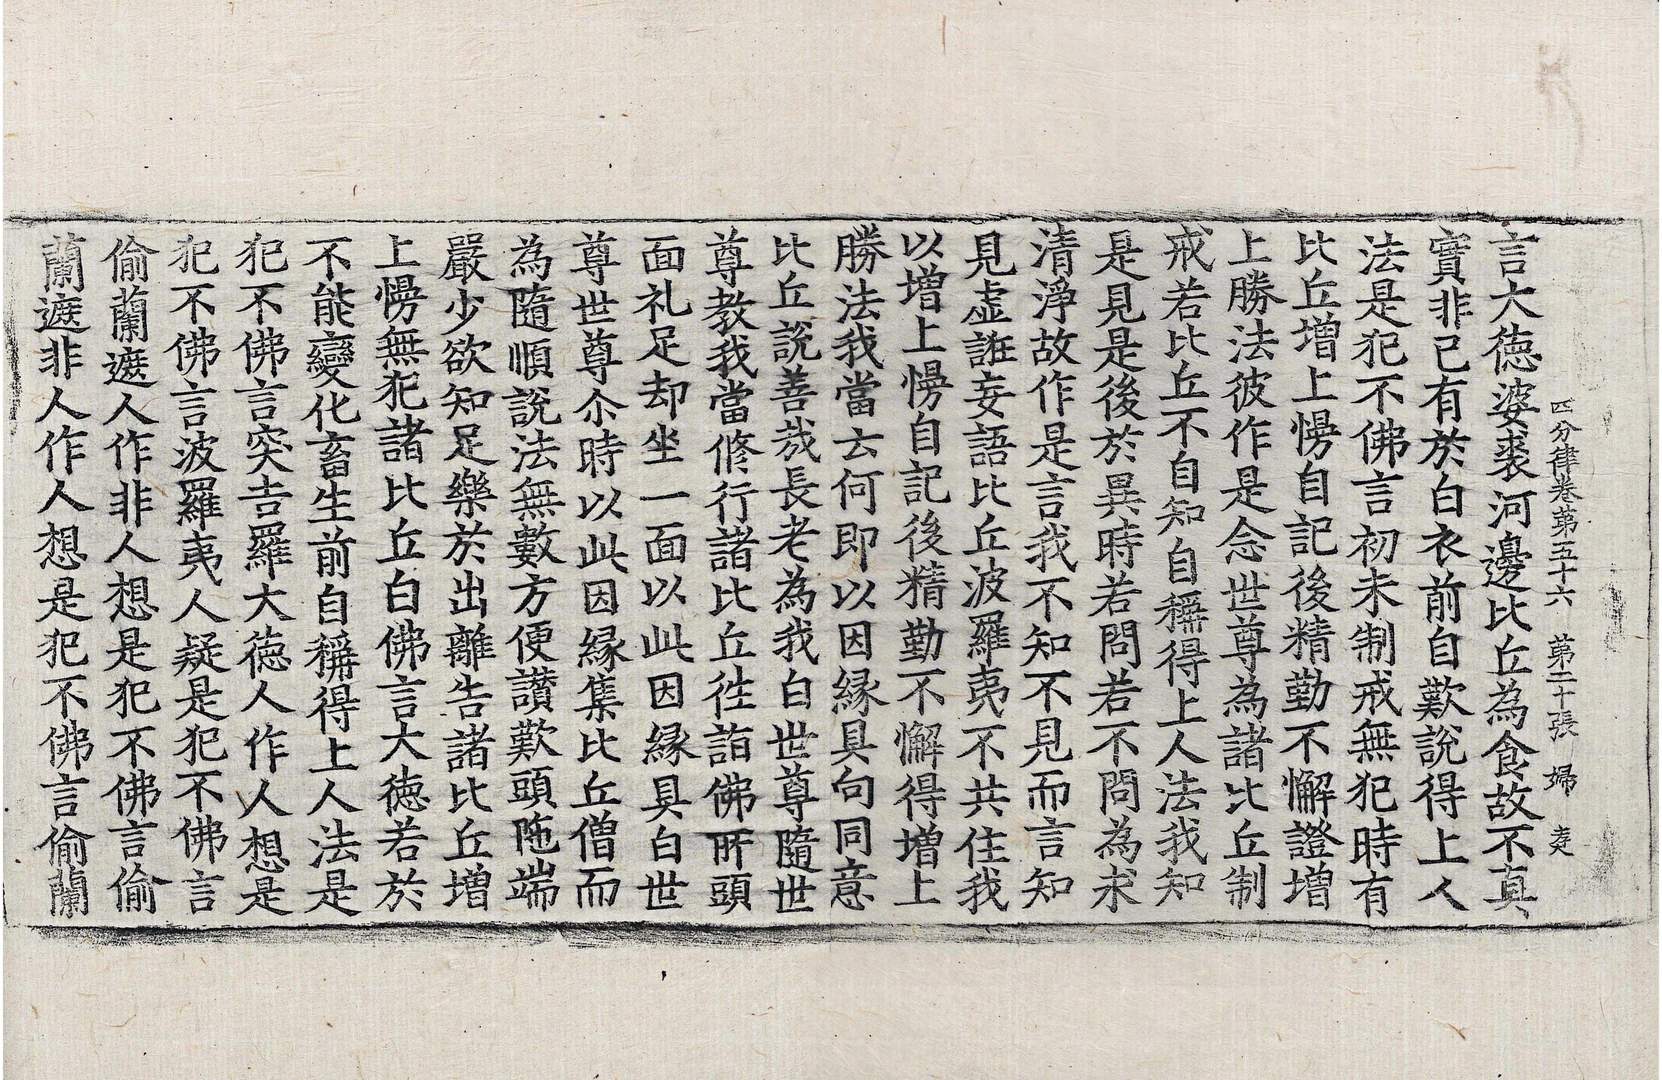 四分律卷第五十六 第二十張 婦
言大德婆裘河邊比丘為食故不真
實非己有於白衣前自歎說得上人
法是犯不佛言初未制戒無犯時有
比丘增上慢自記後精勤不懈證增
上勝法彼作是念世尊為諸比丘制
戒若比丘不自知自稱得上人法我知
是見是後於異時若問若不問為求
清淨故作是言我不知不見而言知
見虛誑妄語比丘波羅夷不共住我
以增上慢自記後精勤不懈得增上
勝法我當云何即以因緣具向同意
比丘說善哉長老為我白世尊隨世
尊教我當修行諸比丘往詣佛所頭
面礼足却坐一面以此因緣具白世
尊世尊尒時以此因緣集比丘僧而
為隨順說法無數方便讚歎頭陁端
嚴少欲知足樂於出離告諸比丘增
上慢無犯諸比丘白佛言大德若於
不能變化畜生前自稱得上人法是
犯不佛言突吉羅大德人作人想是
犯不佛言波羅夷人疑是犯不佛言
偷蘭遮人作非人想是犯不佛言偷
蘭遮非人作人想是犯不佛言偷蘭